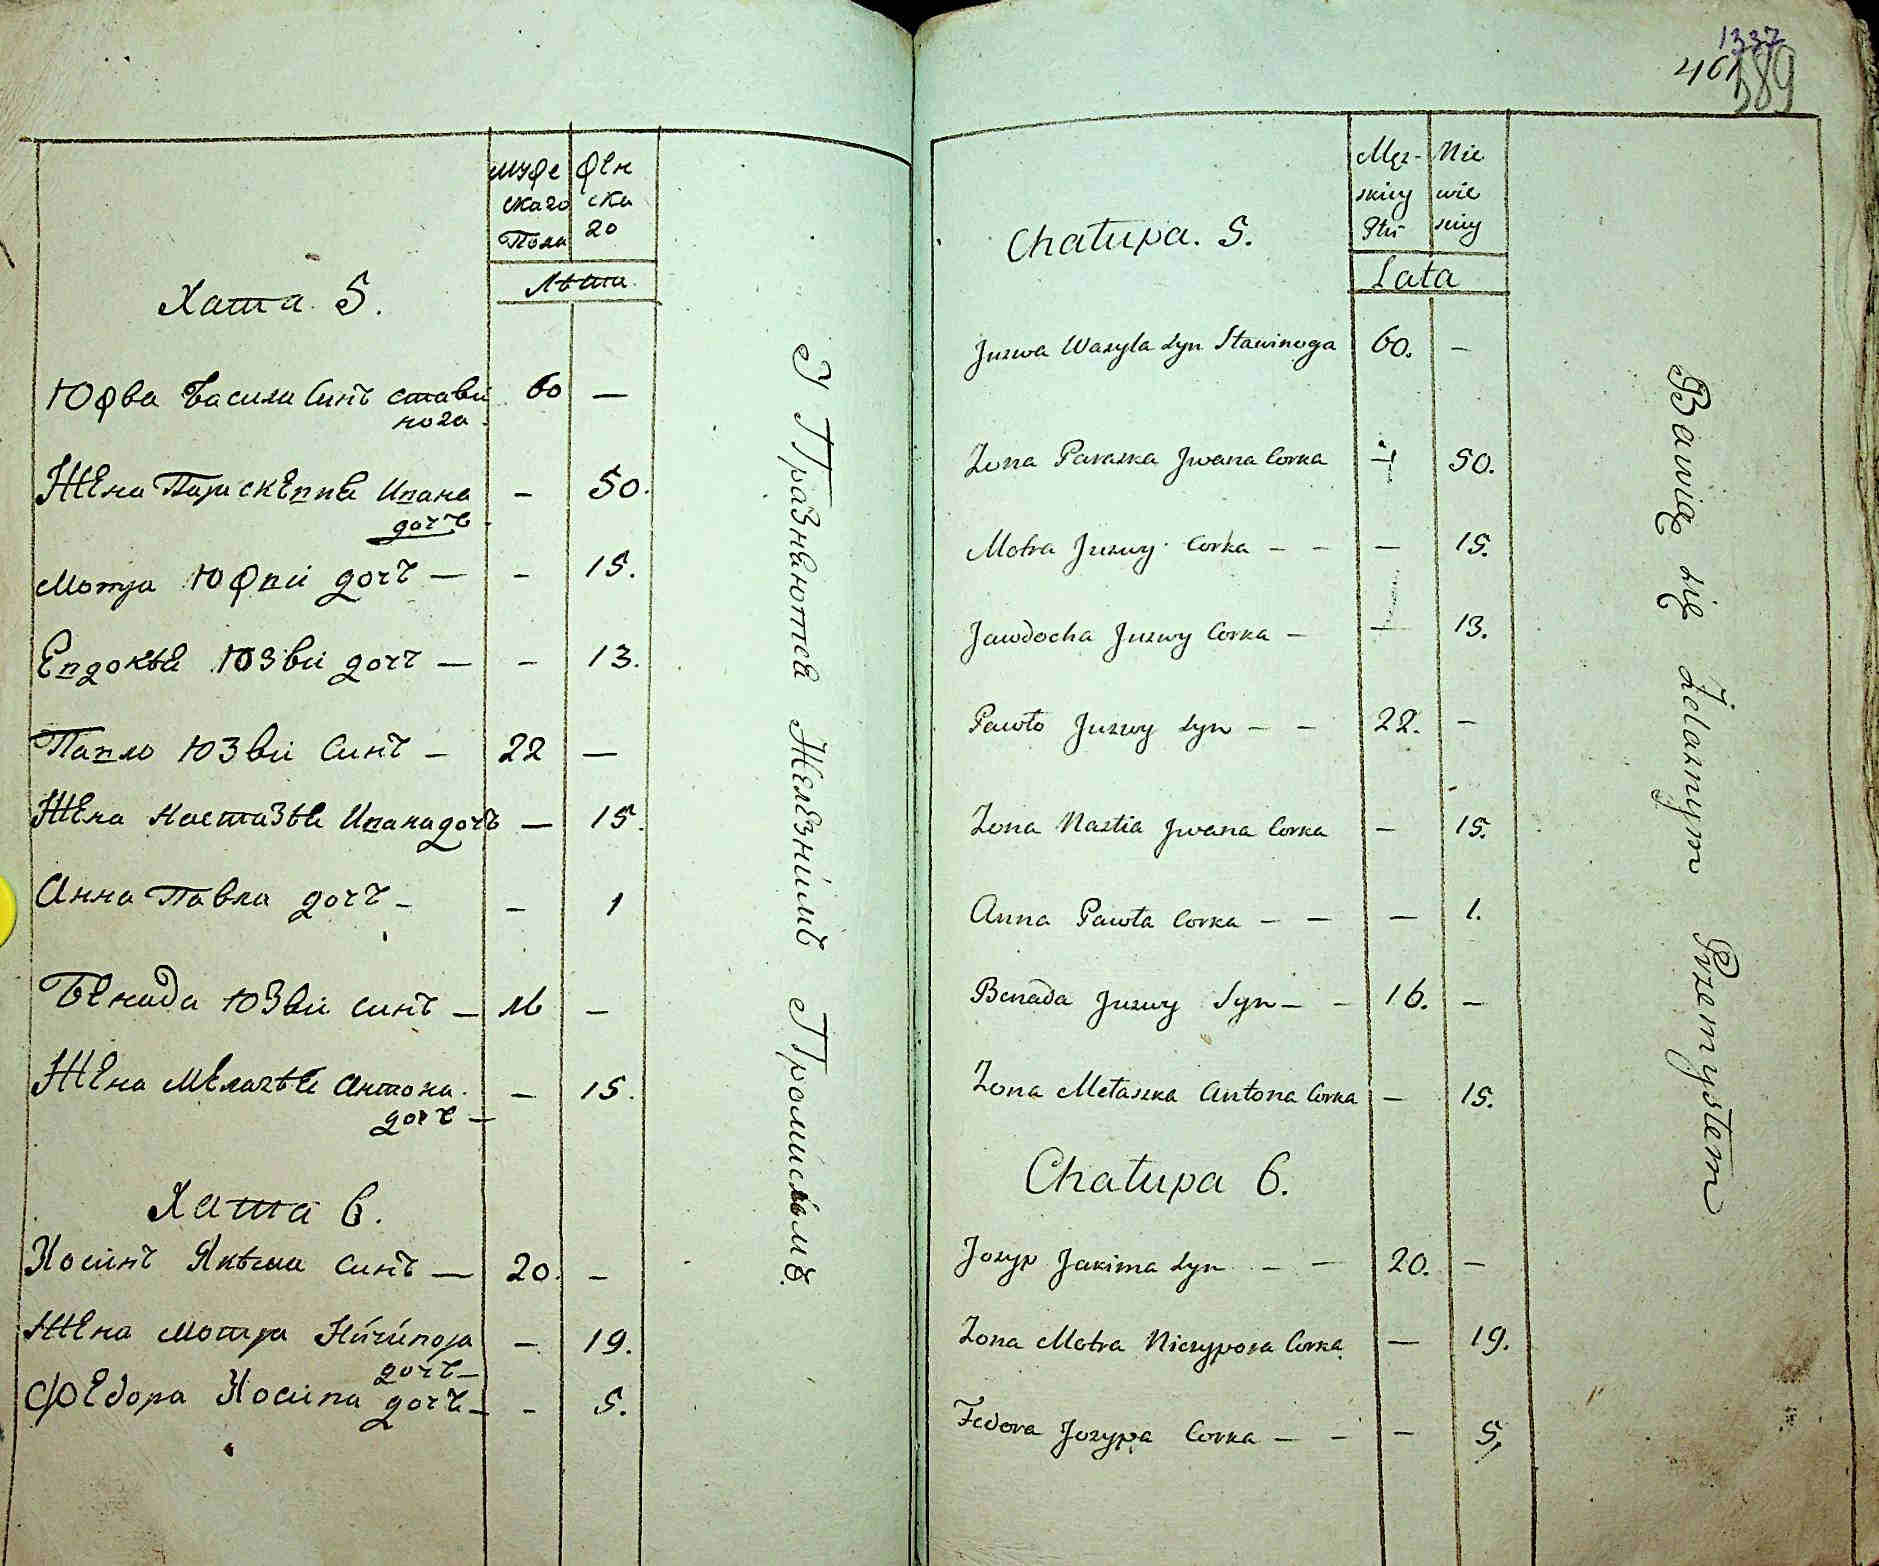 мужескаго Пола
Женскаго
Лѣта
Хата 5.
Юзва Василя Синъ Ставинога 60 —
Жена Параскеввія Ивана дочъ - 50.
Мотря Юзви дочъ — - 15.
Евдокѣя Юзви дочъ — - 13.
Павло Юзви Синъ — 22 —
Жена Настазѣя Ивана дочъ — 15.
Анна Павла дочъ - - 1
Бенада Юзви синъ — 16 —
Жена Мелагѣя Антона дочъ — - 15.
Хата 6.
Иосипъ Якѣма синъ — 20. -
Жена Мотря Ничипора дочъ — - 19.
Федора Иосипа дочъ - - 5.
Упражняются Желѣзнимъ Промисломъ.
1337
461
389
Męz-
skiey
Płci
Nie
wie
sciey
Lata
Chałupa. 5.
Juzwa Wasyla Syn Stawinoga 60. —
Zona Paraska Jwana Corka — 50.
Motra Juzwy Corka - - — 15.
Jawdocha Juzwy Corka - — 13.
Pawło Juzwy Syn - - 22. -
Zona Nastia Jwana Corka - 15.
Anna Pawła Corka - - — 1.
Benada Juzwy Syn - - 16. -
Zona Mełaszka Antona Corka - 15.
Chałupa 6.
Jozyp Jakima Syn - - 20. -
Zona Motra Niczypora Corka — 19.
Fedora Jozypa Corka - - - 5.
Bawią się Żelaznym Przemysłem